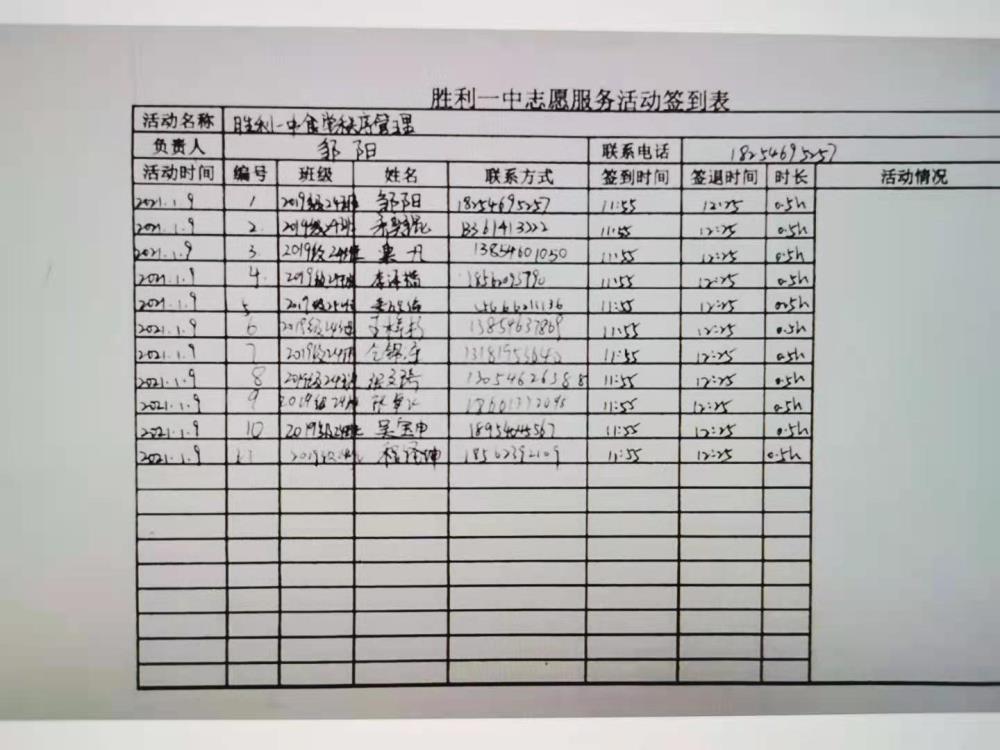 胜利一中志愿服务活动签到表
活动名称 胜利一中食堂秩序管理
负责人 邹阳 联系电话 18254695257
活动时间 编号 班级 姓名 联系方式 签到时间 签退时间 时长 活动情况
2021.1.9 1 2019级24班 邹阳 18254695257 11:55 12:25 0.5h
2021.1.9 2 2019级24班 13361413222 11:55 12:25 0.5h
2021.1.9 3 2019级24班 13854601050 11:55 12:25 0.5h
2021.1.9 4 2019级24班 李泽楷 11:55 12:25 0.5h
2021.1.9 5 2019级24班 11:55 12:25 0.5h
2021.1.9 6 2019级24班 13854637869 11:55 12:25 0.5h
2021.1.9 7 2019级24班 11:55 12:25 0.5h
2021.1.9 8 2019级24班 13054626388 11:55 12:25 0.5h
2021.1.9 9 2019级24班 11:55 12:25 0.5h
2021.1.9 10 2019级24班 吴宝申 11:55 12:25 0.5h
2021.1.9 11 程泽坤 18562392109 11:55 12:25 0.5h